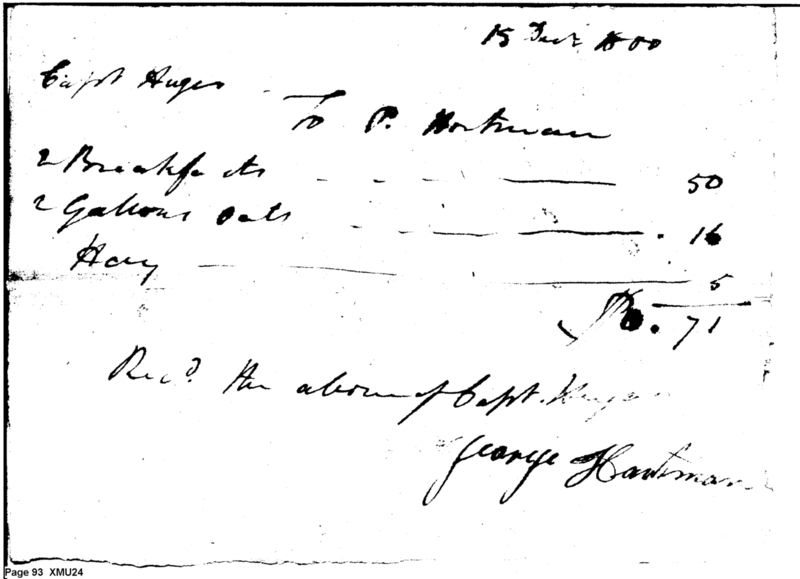 15 Decr. 1800
Capt Huger
To P. Hartman
2 Breakfasts 50
2 Gallons oats 16
Hay 5
D0. 71
Recd. the above of Capt. Huger
George Hartman
Page 93 XMU24